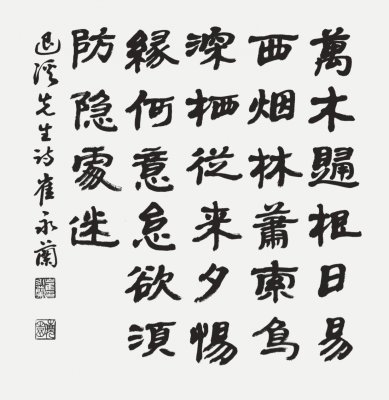 萬木歸根日易
西烟林蕭索鳥
深栖從来夕惕
緣何意怠欲須
防隐處迷
退溪先生詩崔永蘭